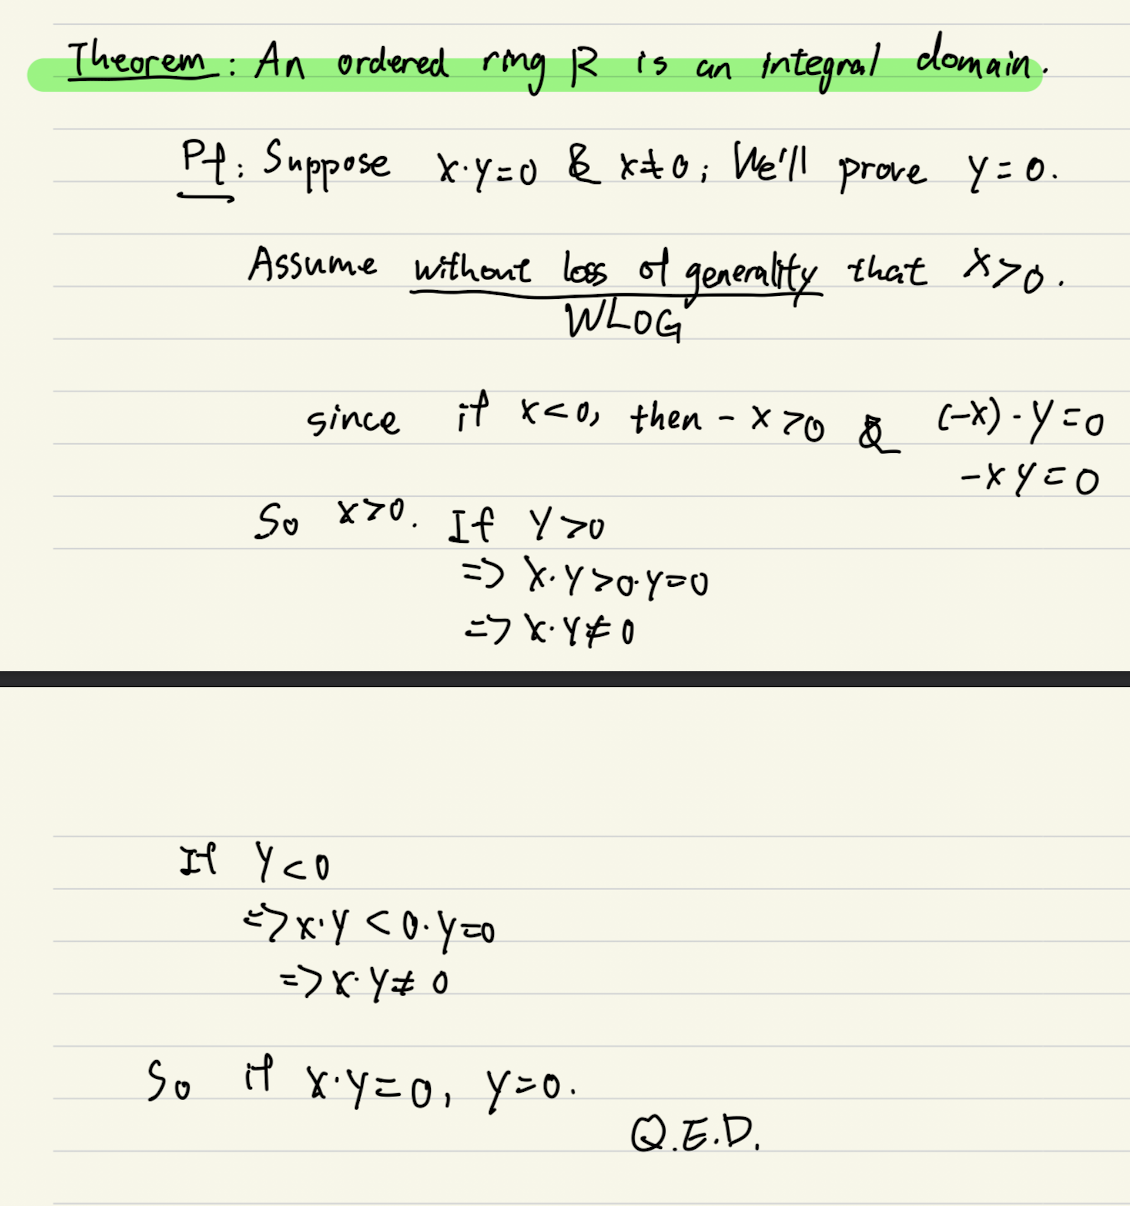 Theorem: An ordered ring R is an integral domain.
Pf: Suppose x·y=0 & x≠0; We'll prove y=0.
Assume without loss of generality that x>0.
WLOG
since if x<0, then -x>0 & (-x)·y=0
-xy=0
So x>0. If y>0
=> x·y>0·y=0
=> x·y≠0
If y<0
=> x·y<0·y=0
=> x·y≠0
So if x·y=0, y=0.
Q.E.D.